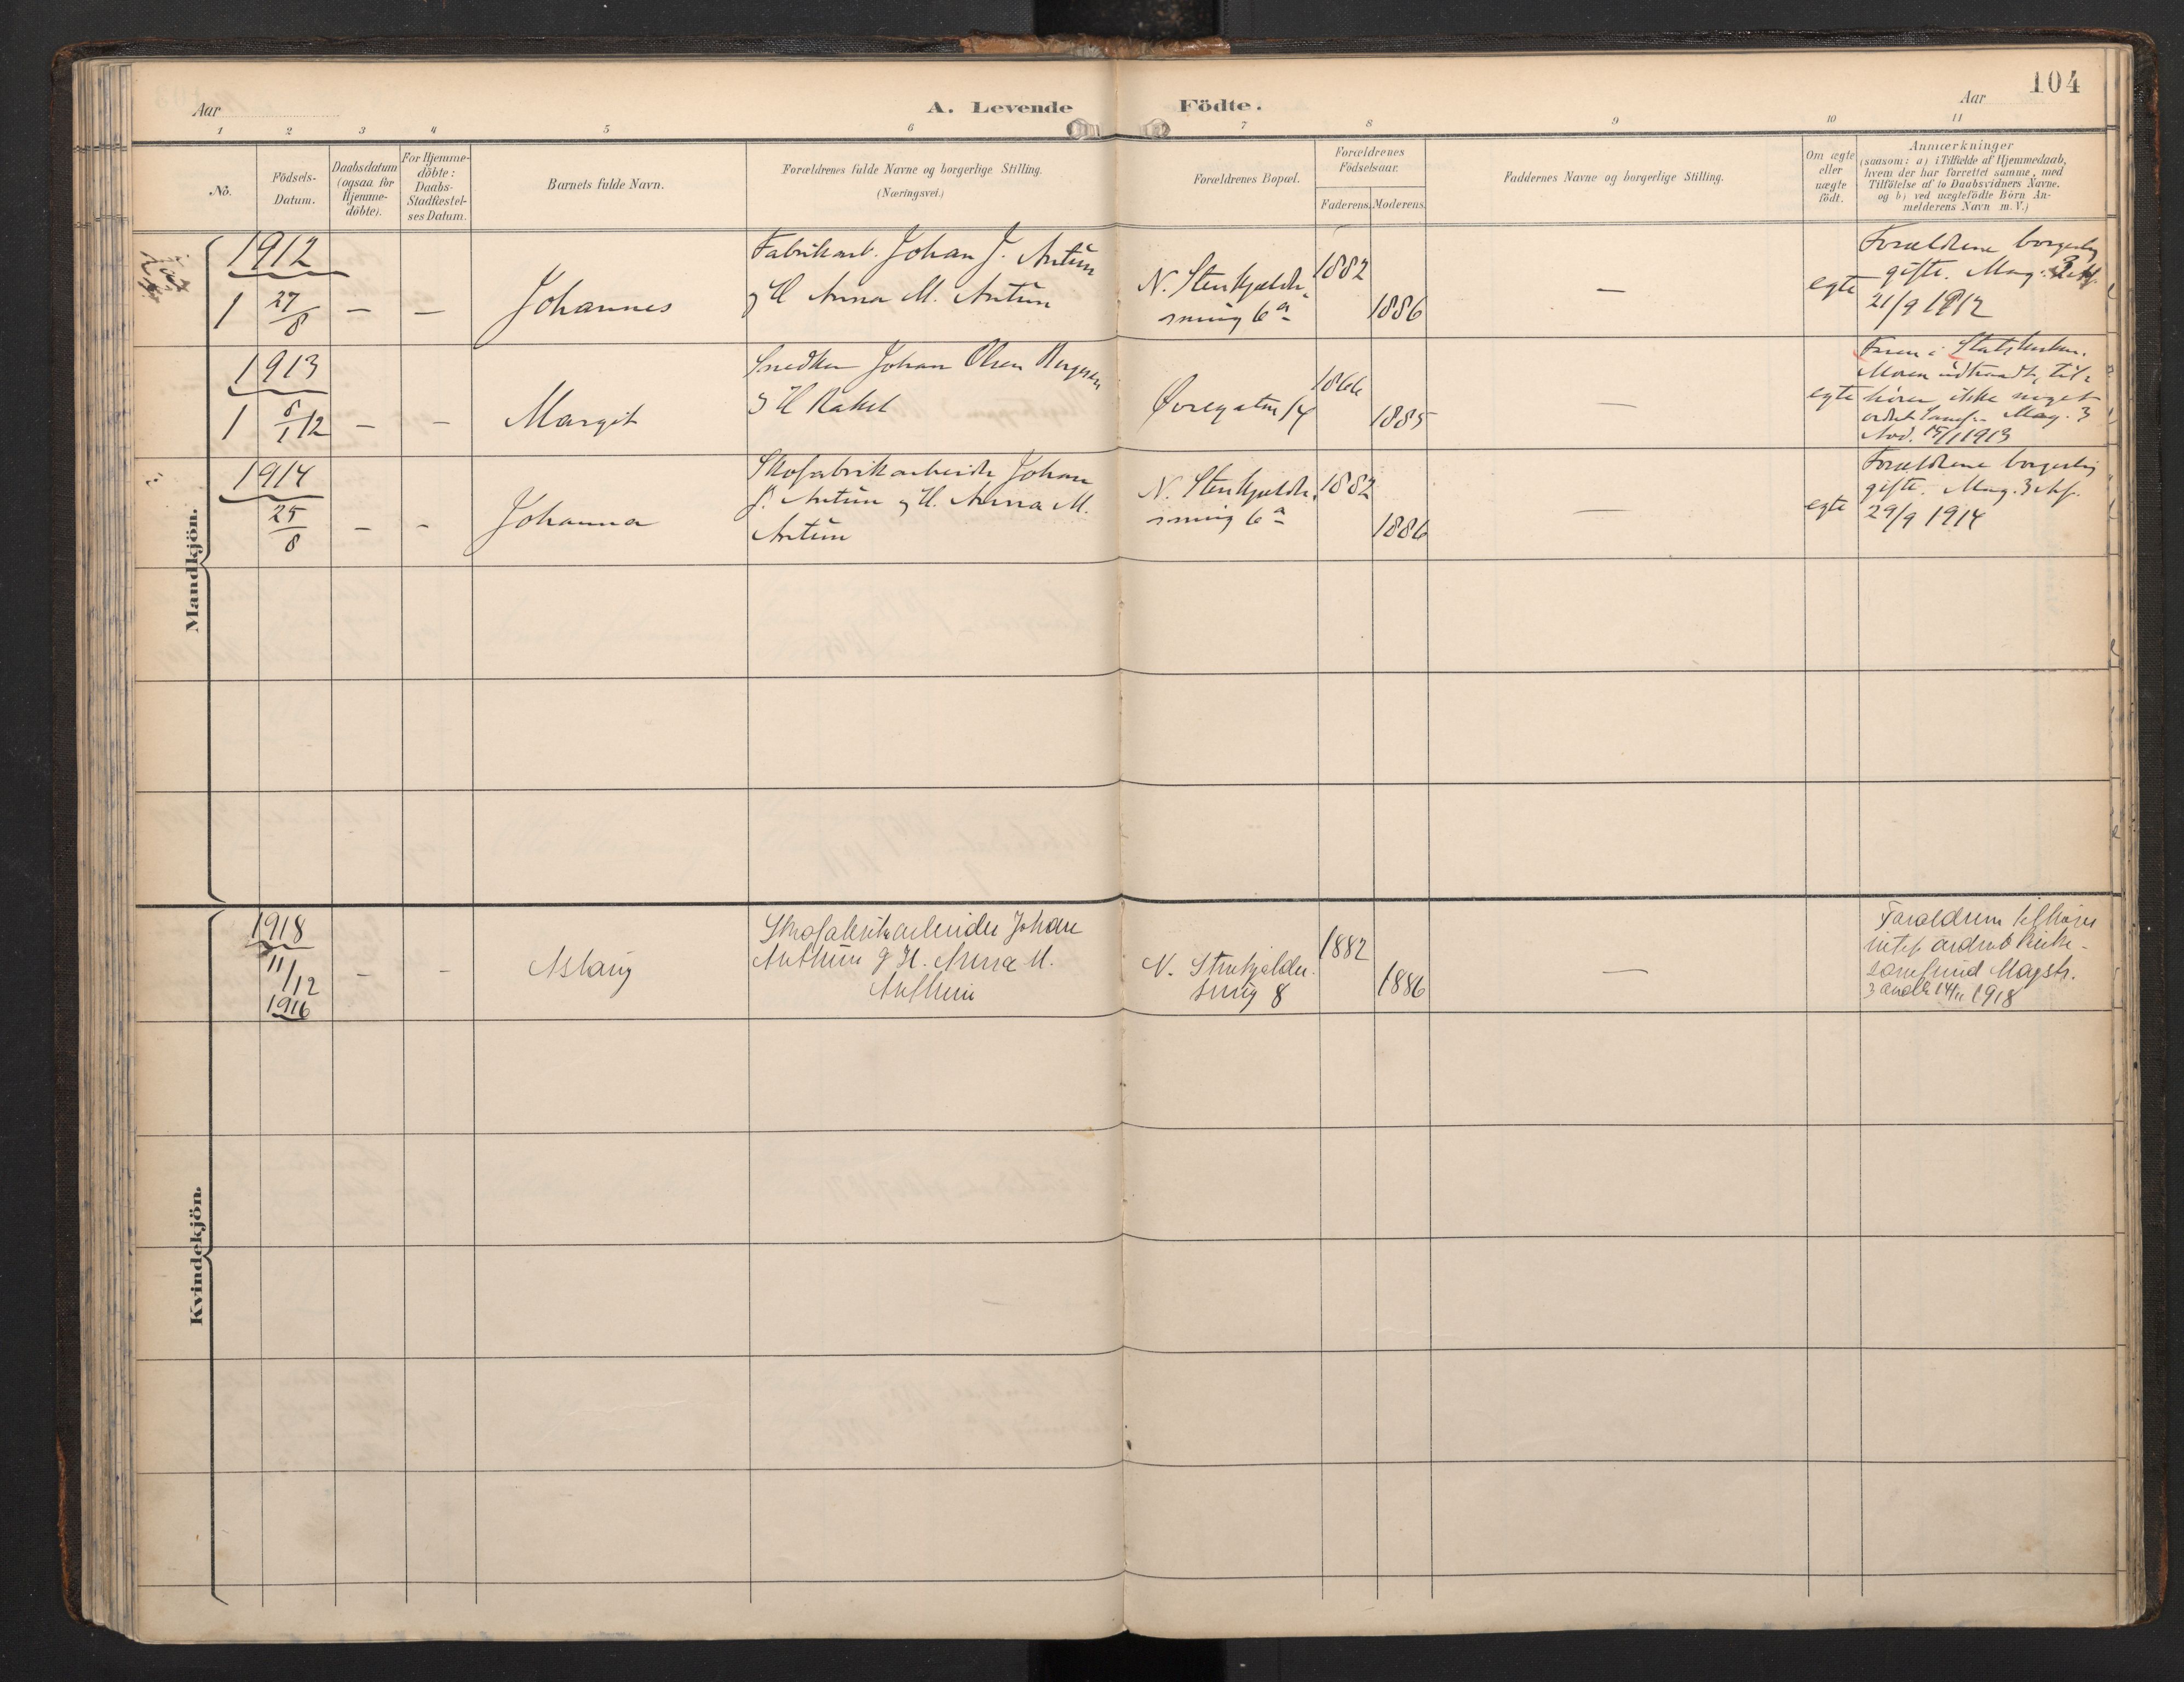 104
Aar
A. Levende Födte.
Aar
1 2 3 4 5 6 7 8 9 10 11
No.
Födsels-
Datum.
Daabsdatum
(ogsaa for
Hjemme-
döbte).
For Hjemme-
döbte:
Daabs-
Stadfæstel-
ses Datum.
Barnets fulde Navn.
Forældrenes fulde Navne og borgerlige Stilling.
(Næringsvei.)
Forældrenes Bopæl.
Forældrenes
Födselsaar.
Faderens. Moderens.
Faddernes Navne og borgerlige Stilling.
Om ægte
eller
uægte
födt.
Anmærkninger
(saasom: a) i Tilfælde af Hjemmedaab,
hvem der har forrettet samme, med
Tilföielse af to Daabsvidners Navne.
og b) ved uægtefödte Börn An-
melderens Navn m. V.)
Mandkjön.
1912
1 27/8 — —
Johannes
Fabrikarb. Johan J. Antun
og H Anna M. Antun
N. Stenkjelder
smug 6a
1882
1886
—
egte
Forældrene borgerlig
gifte. Mag. 3
21/9 1912
1913
1 8/1 12 — —
Margit
Snedker Johan Olsen
og H Rakel
Øvregaten 14
1866
1885
—
egte
Faren i Statskirken.
Moren udtraadt, til-
hører ikke noget
andet Mag. 3
15/1 1913
1914
25/8 — -
Johanna
Skofabrikarbeider Johan
J. Antun og H. Anna M.
Antun
N. Stenkjelder
smug 6a
1882
1886
—
egte
Forældrene borgerlig
gifte. Mag. 3
29/9 1914
Kvindekjön.
1918
11/12
1916
- -
Aslaug
Skofabrikarbeider Johan
Anthun og H. Anna M.
Anthun
N. Stenkjelder
smug 8
1882
1886
—
Forældrene tilhører
intet andret Kirke-
samfund Magstr.
3 14/11 1918